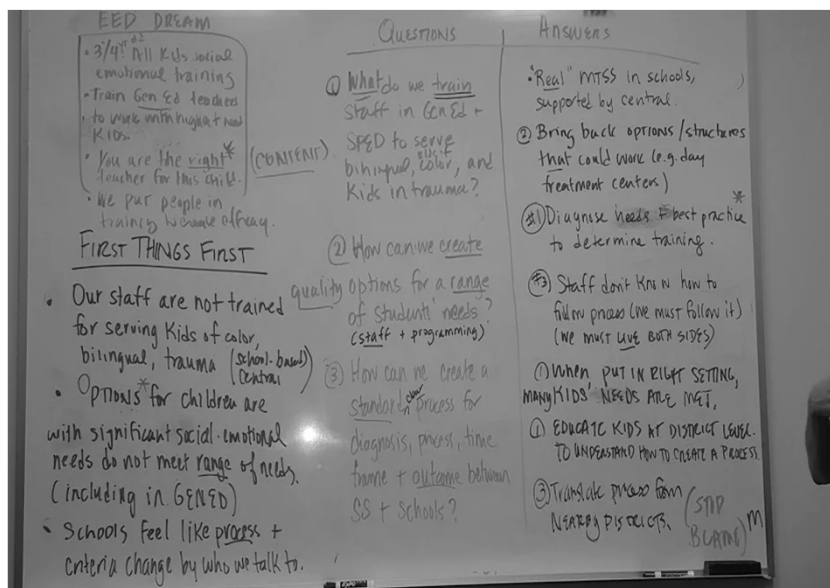 EED DREAM
• 3/4: All Kids social
emotional training
• Train Gen Ed teachers
to work with highest need
Kids.
• You are the right*
teacher for this child.
• We put people in
training to create efficacy.
(CONTENT)
FIRST THINGS FIRST
• Our staff are not trained
for serving Kids of color,
bilingual, trauma (school-based/
central)
• OPTIONS* for children are
with significant social-emotional
needs do not meet range of needs.
(including in GENED)
• Schools feel like process +
criteria change by who we talk to.
QUESTIONS
① What do we train
staff in GenEd +
SPED to serve
bilingual, color, and
Kids in trauma?
② How can we create
quality options for a range
of students' needs?
(staff + programming)
③ How can we create a
standard clear process for
diagnosis, process, time
frame + outcome between
SS + Schools?
ANSWERS
• "Real" MTSS in schools,
supported by central.
② Bring back options/structures
that could work (e.g. day
treatment centers)
#1 Diagnose needs + best practice*
to determine training.
#3 Staff don't know how to
follow process (we must follow it)
(we must LIVE BOTH SIDES)
① When PUT IN RIGHT SETTING,
MANY KIDS' NEEDS ARE MET.
① EDUCATE KIDS AT DISTRICT LEVEL
TO UNDERSTAND HOW TO CREATE A PROCESS.
③ Translate process from
NEARBY DISTRICTS.
(STOP
BLAMING)